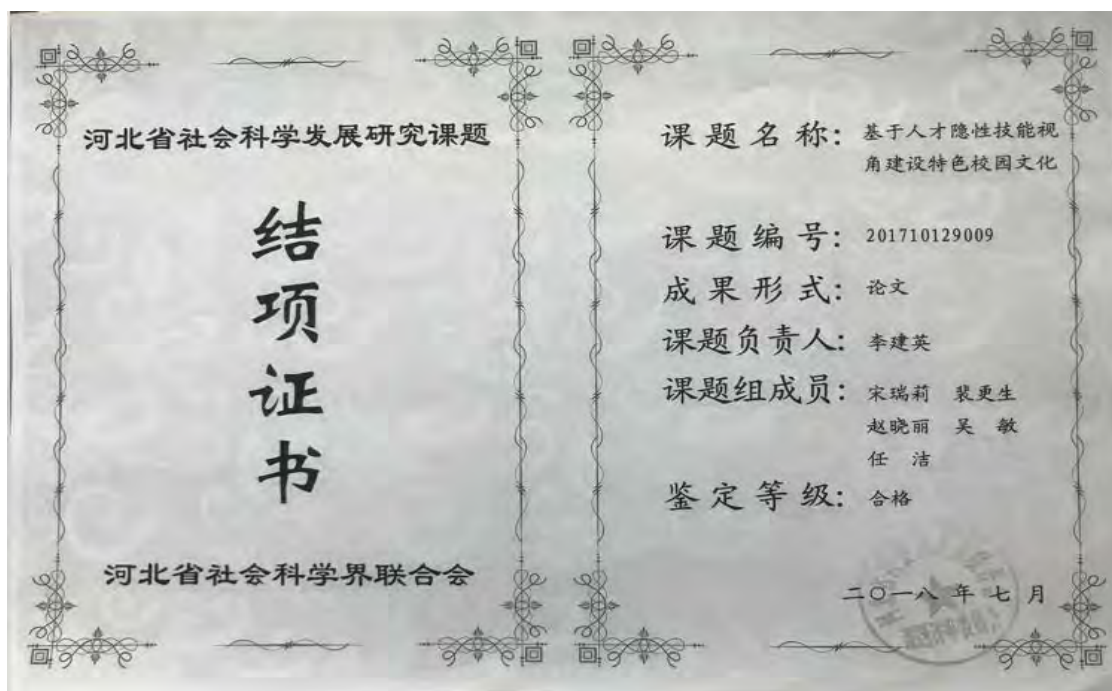 河北省社会科学发展研究课题
结
项
证
书
河北省社会科学界联合会
课题名称：基于人才隐性技能视
角建设特色校园文化
课题编号：201710129009
成果形式：论文
课题负责人：李建英
课题组成员：宋瑞莉 裴更生
赵晓丽 吴敏
任洁
鉴定等级：合格
二〇一八年七月